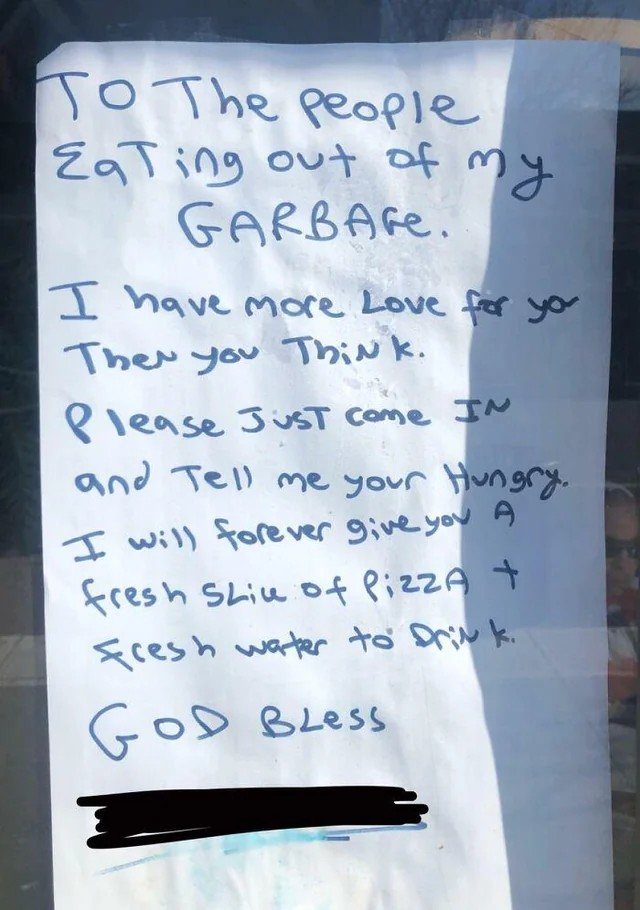 To The people
EaTing out of my
GARBAGe.
I have more Love for you
Then you ThiNk.
Please JusT come IN
and Tell me your Hungry.
I will forever give you A
fresh SLice of PizzA +
fresh water to DriNk.
GOD BLess